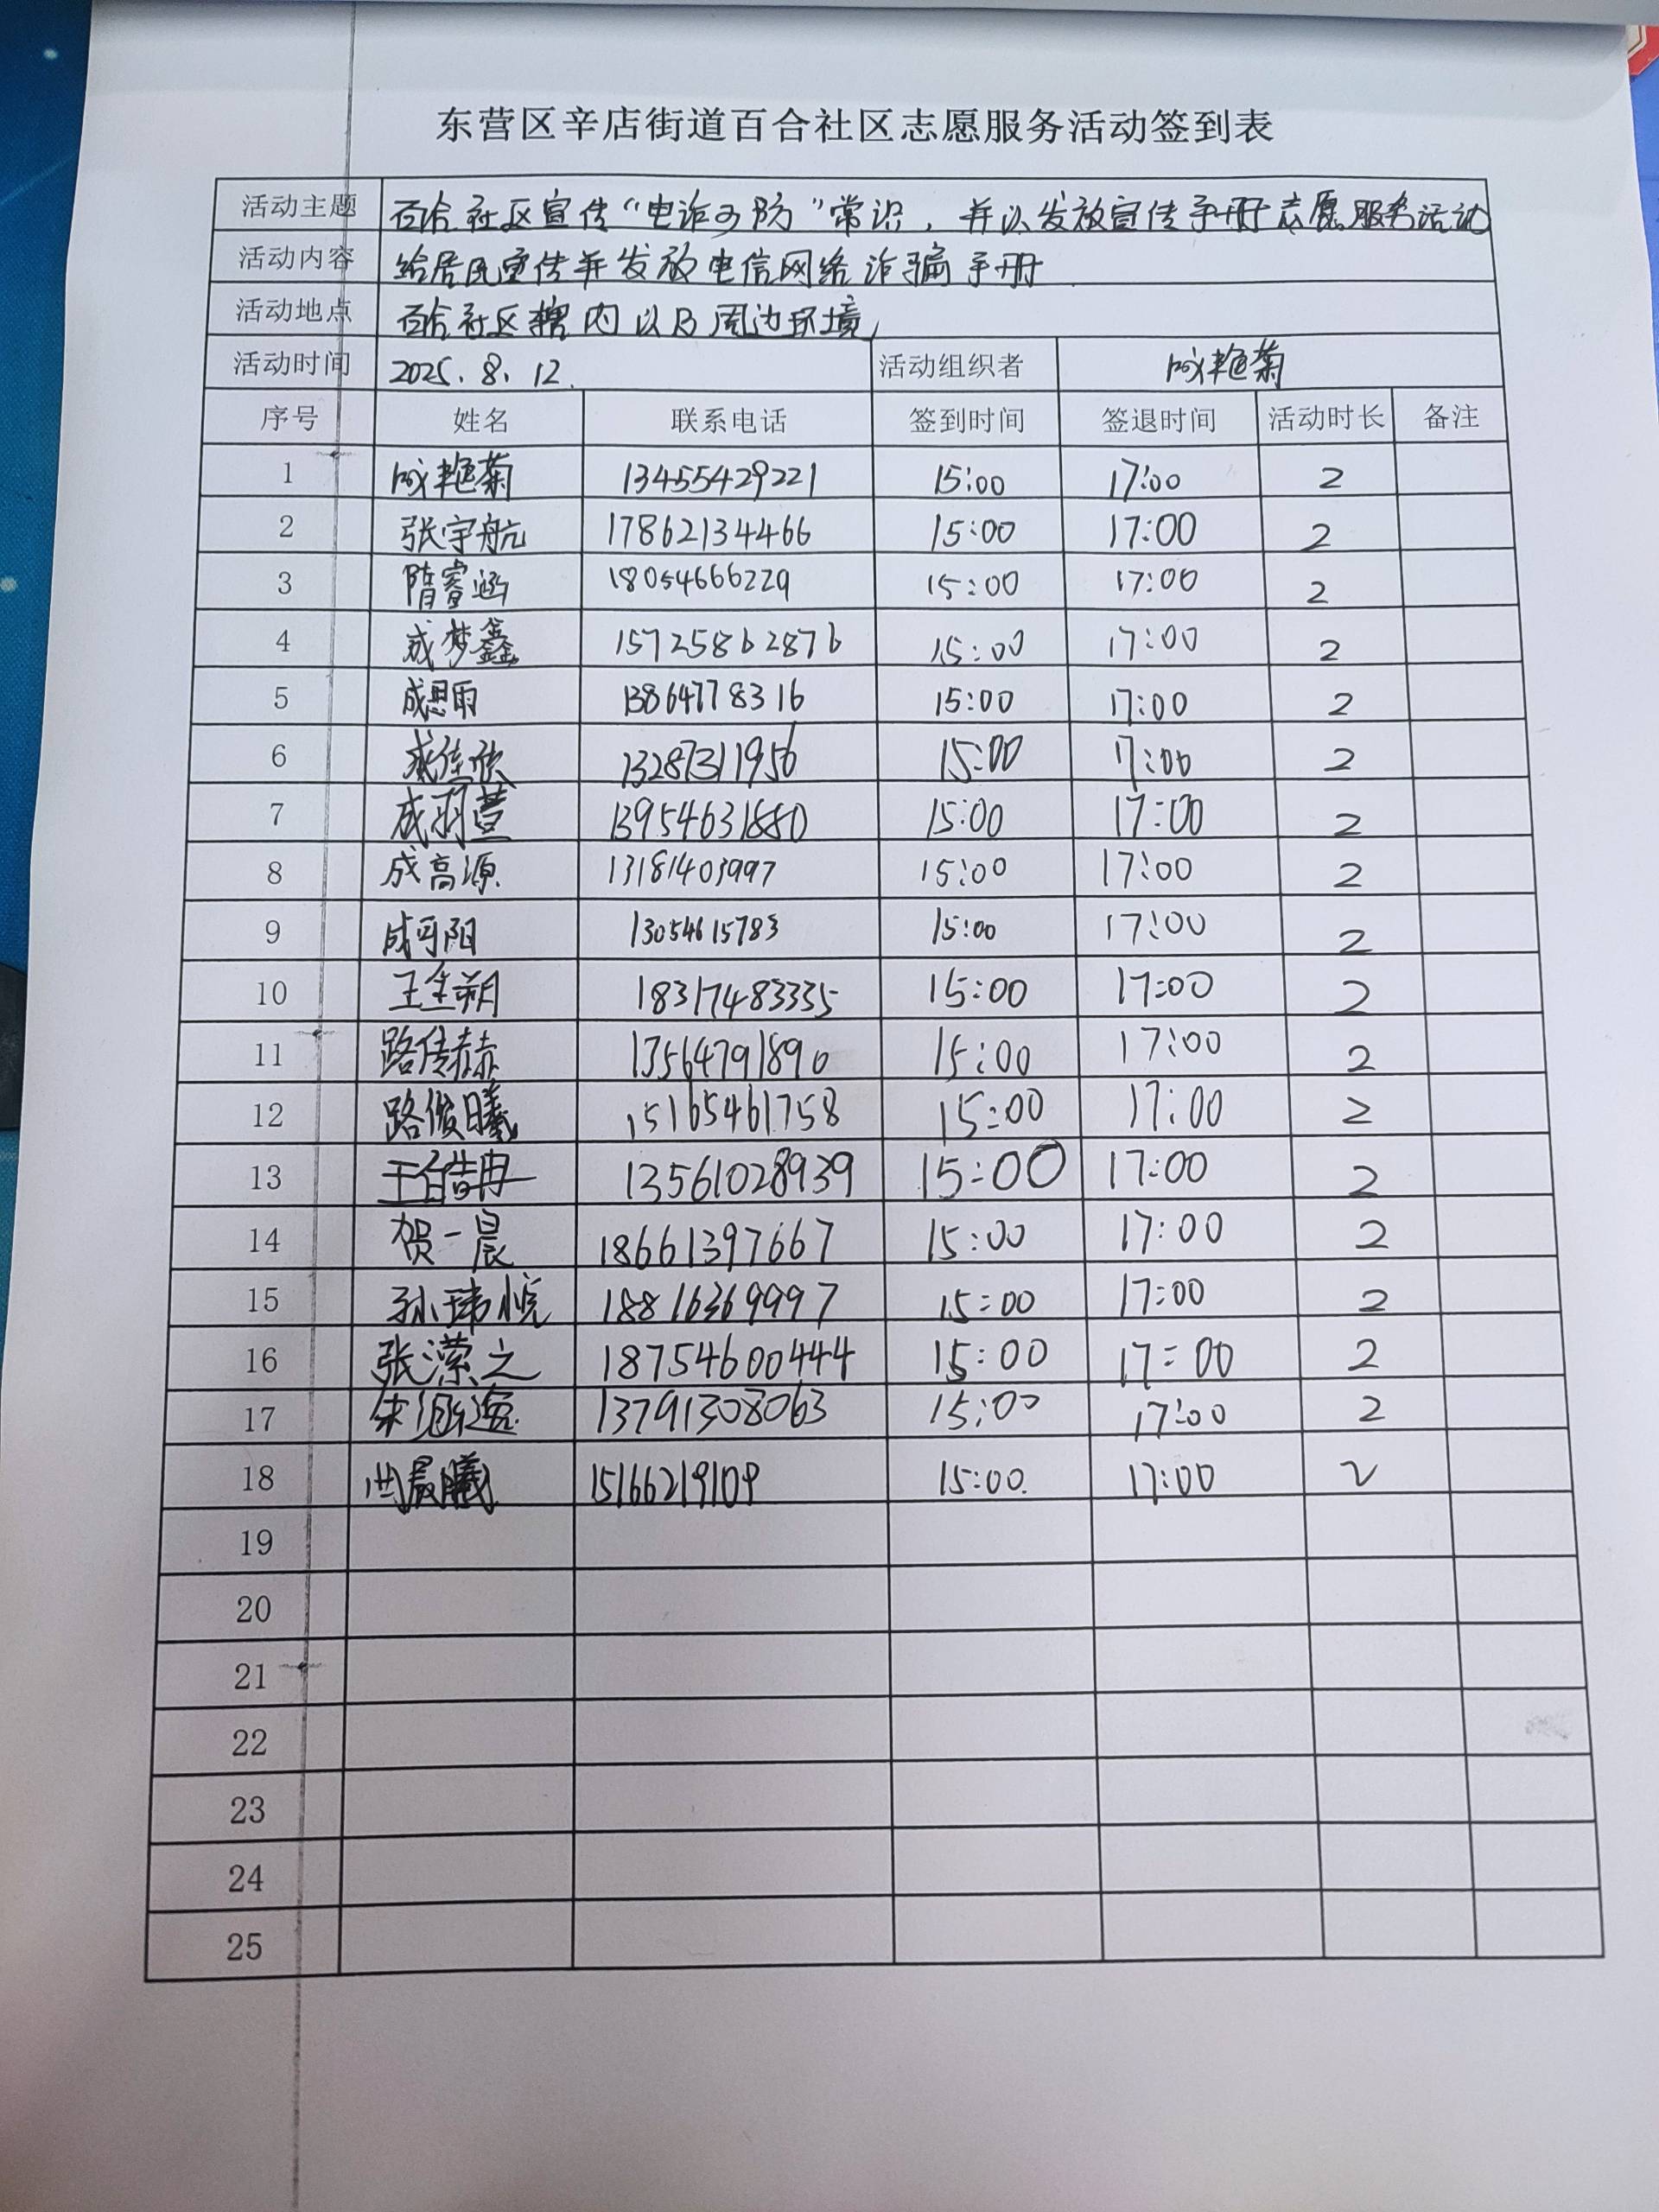 东营区辛店街道百合社区志愿服务活动签到表
活动主题 百合社区宣传“电诈可防”常识，并以发放宣传手册志愿服务活动
活动内容 给居民宣传并发放电信网络诈骗手册
活动地点 百合社区辖内以及周边环境
活动时间 2025.8.12. 活动组织者 成艳菊
序号 姓名 联系电话 签到时间 签退时间 活动时长 备注
1 成艳菊 13455429221 15:00 17:00 2
2 张宇航 17862134466 15:00 17:00 2
3 隋睿涵 18054666229 15:00 17:00 2
4 成梦鑫 15725862876 15:00 17:00 2
5 成思雨 13864778316 15:00 17:00 2
6 成佳欣 13287311956 15:00 17:00 2
7 成羽萱 13954631880 15:00 17:00 2
8 成高源 13181403997 15:00 17:00 2
9 成可阳 13054615783 15:00 17:00 2
10 王金朔 18317483335 15:00 17:00 2
11 路传赫 13564791890 15:00 17:00 2
12 路俊曦 15165461758 15:00 17:00 2
13 13561028939 15:00 17:00 2
14 贺一晨 18661397667 15:00 17:00 2
15 孙玮悦 18816369997 15:00 17:00 2
16 张潆之 18754600444 15:00 17:00 2
17 13791308063 15:00 17:00 2
18 曲晨曦 15166219109 15:00 17:00 2
19
20
21
22
23
24
25